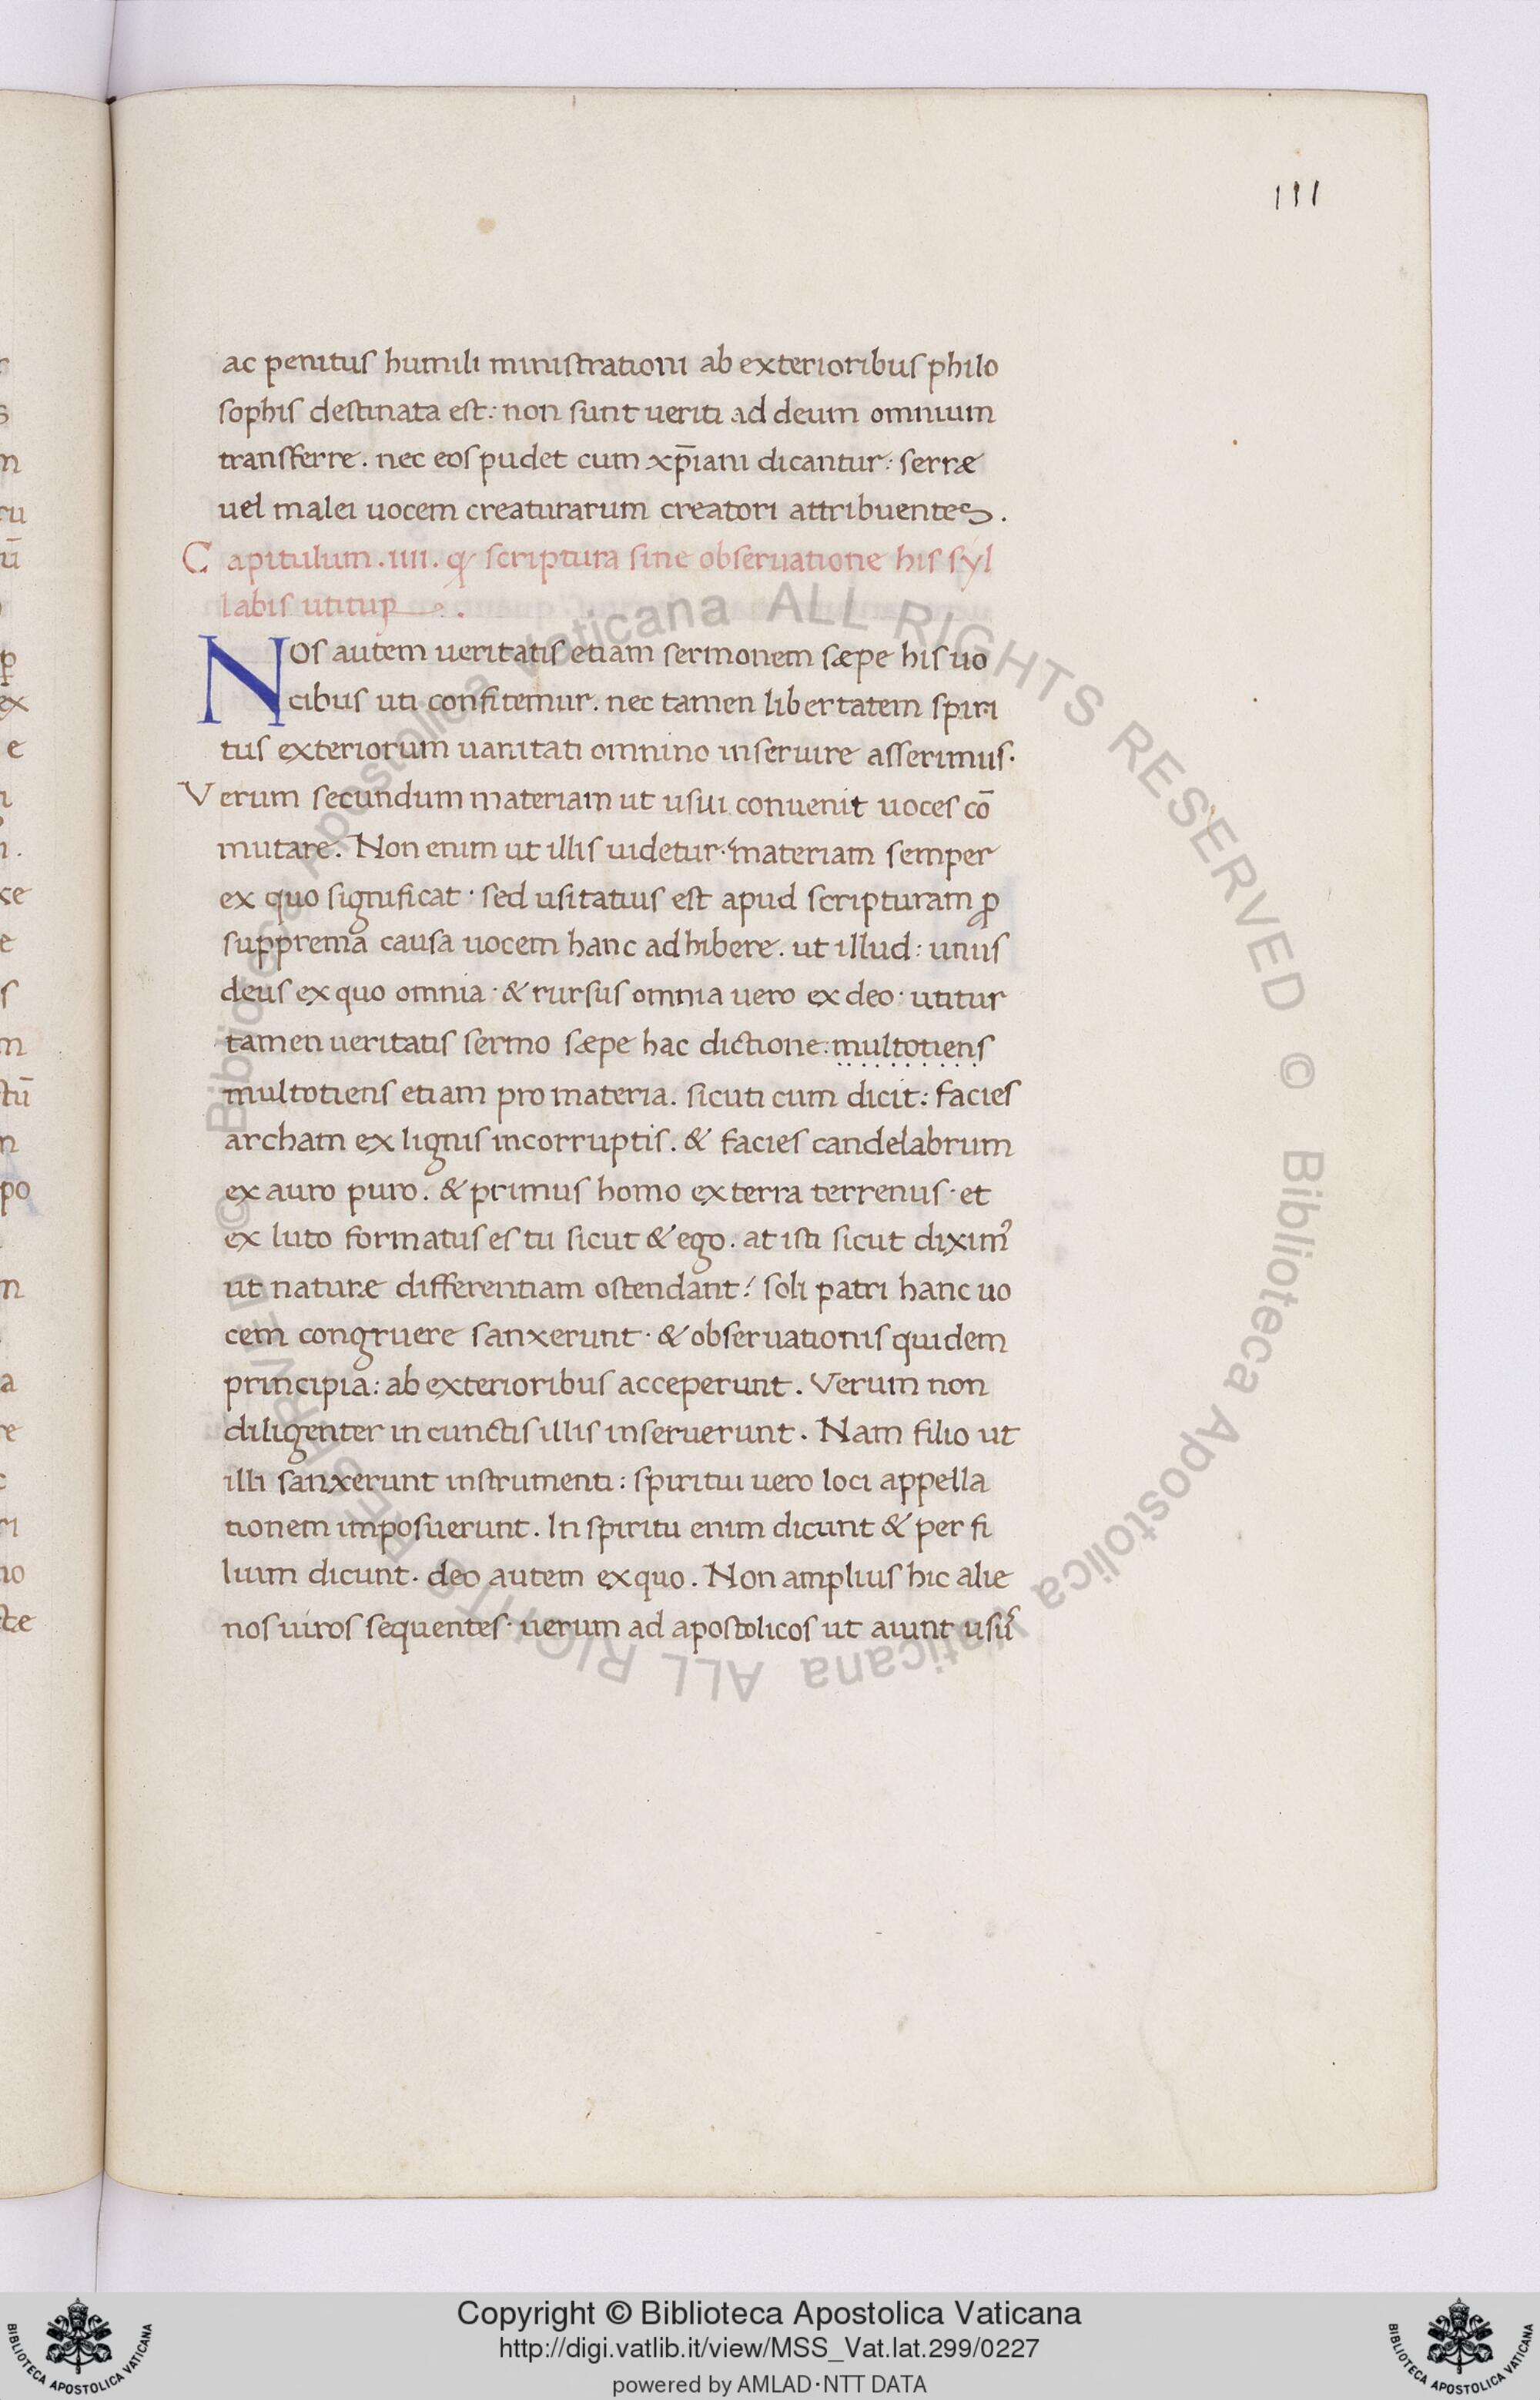 111
ac penitus humili ministrationi ab exterioribus philo
sophis destinata est: non sunt ueriti ad deum omnium
transferre. nec eos pudet cum xp̄iani dicantur: serræ
uel malei uocem creaturarum creatori attribuentes.
Capitulum .iiii. qꝫ scriptura sine obseruatione his syl
labis utitur.
NOs autem ueritatis etiam sermonem sæpe his uo
cibus uti confitemur. nec tamen libertatem spiri
tus exteriorum uanitati omnino inseruire asserimus.
Verum secundum materiam ut usui conuenit uoces cō
mutare. Non enim ut illis uidetur. materiam semper
ex quo significat. sed usitatius est apud scripturam ꝓ
supprema causa uocem hanc adhibere. ut illud: unus
deus ex quo omnia. & rursus omnia uero ex deo. utitur
tamen ueritatis sermo sæpe hac dictione: multotiens
multotiens etiam pro materia. sicuti cum dicit: facies
archam ex lignis incorruptis. & facies candelabrum
ex auro puro. & primus homo ex terra terrenus. et
ex luto formatus es tu sicut & ego. at isti sicut diximꝰ
ut naturæ differentiam ostendant: soli patri hanc uo
cem congruere sanxerunt. & obseruationis quidem
principia: ab exterioribus acceperunt. Verum non
diligenter in cunctis illis inseruerunt. Nam filio ut
illi sanxerunt instrumenti: spiritui uero loci appella
tionem imposuerunt. In spiritu enim dicunt & per fi
lium dicunt. deo autem ex quo. Non amplius hic alie
nos uiros sequentes. uerum ad apostolicos ut aiunt usus̄
© Biblioteca Apostolica Vaticana ALL RIGHTS RESERVED © Biblioteca Apostolica Vaticana ALL RIGHTS RESERVED
Copyright © Biblioteca Apostolica Vaticana
http://digi.vatlib.it/view/MSS_Vat.lat.299/0227
powered by AMLAD·NTT DATA
BIBLIOTECA APOSTOLICA VATICANA
BIBLIOTECA APOSTOLICA VATICANA